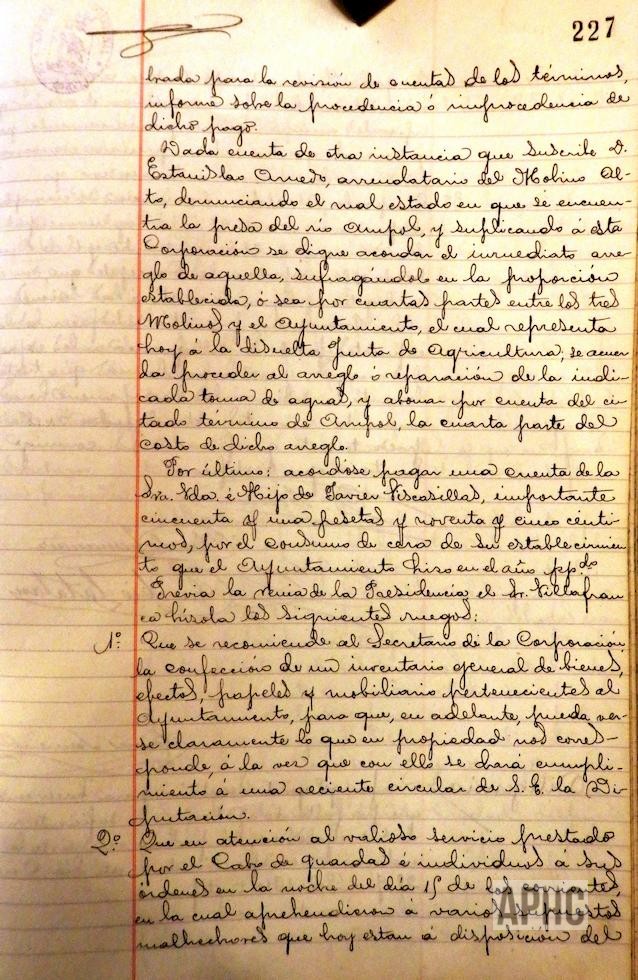 227
brada para la revisión de cuentas de los términos,
informe sobre la procedencia ó improcedencia de
dicho pago.
Dada cuenta de otra instancia que suscribe D.
Estanislao Arnedo, arrendatario del Molino Al-
to, denunciando el mal estado en que se encuen-
tra la presa del río Ampol, y suplicando á esta
Corporación se digne acordar el inmediato arre-
glo de aquella, sufragándolo en la proporción
establecida, ó sea por cuartas partes entre los tres
Molinos y el Ayuntamiento, el cual representa
hoy á la disuelta Junta de Agricultura; se acuer-
da proceder al arreglo ó reparación de la indi-
cada toma de aguas, y abonar por cuenta del ci-
tado término de Ampol, la cuarta parte del
costo de dicho arreglo.
Por último: acordóse pagar una cuenta de la
Sra. Vda. é Hijo de Javier Viscasillas, importante
cincuenta y una pesetas y noventa y cinco cénti-
mos, por el consumo de cera de su establecimien-
to que el Ayuntamiento hizo en el año ppdo
Previa la venia de la Presidencia, el Sr. Villafran-
ca hízola los siguientes ruegos:
1º. Que se recomiende al Secretario de la Corporación,
la confección de un inventario general de bienes,
efectos, papeles y mobiliario pertenecientes al
Ayuntamiento, para que, en adelante, pueda ver-
se claramente lo que en propiedad nos corres-
ponde, á la vez que con ello se dará cumpli-
miento á una reciente circular de S. E. la Di-
putación.
2º. Que en atención al valioso servicio prestado
por el Cabo de guardas é individuos á sus
órdenes en la noche del día 15 de los corrientes,
en la cual aprehendieron á varios supuestos
malhechores que hoy estan á disposición del
APHC